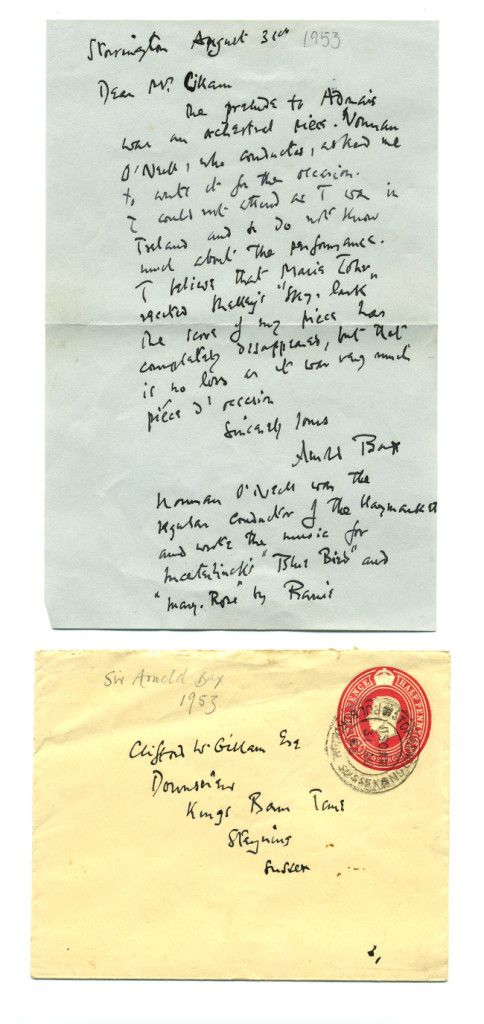 Storrington August 31st 1953
Dear Mr. Gillam
The prelude to Adonais
was an orchestral piece. Norman
O'Neill, who conducted, asked me
to write it for the occasion.
I could not attend as I was in
Ireland and so do not know
much about the performance.
I believe that Marie Tohr
recited Shelley's "Sky-lark"
The score of my piece has
completely disappeared, but that
is no loss as it was very much
pièce d'occasion
Sincerely Yours
Arnold Bax
Norman O'Neill was the
regular conductor of the Haymarket
and wrote the music for
Maeterlinck's "Blue Bird" and
"Mary. Rose" by Barrie
Sir Arnold Bax
1953
HALFPENNY
SUSSEX
Clifford W Gillam Esq
Downsview
Kings Barn Lane
Steyning
Sussex